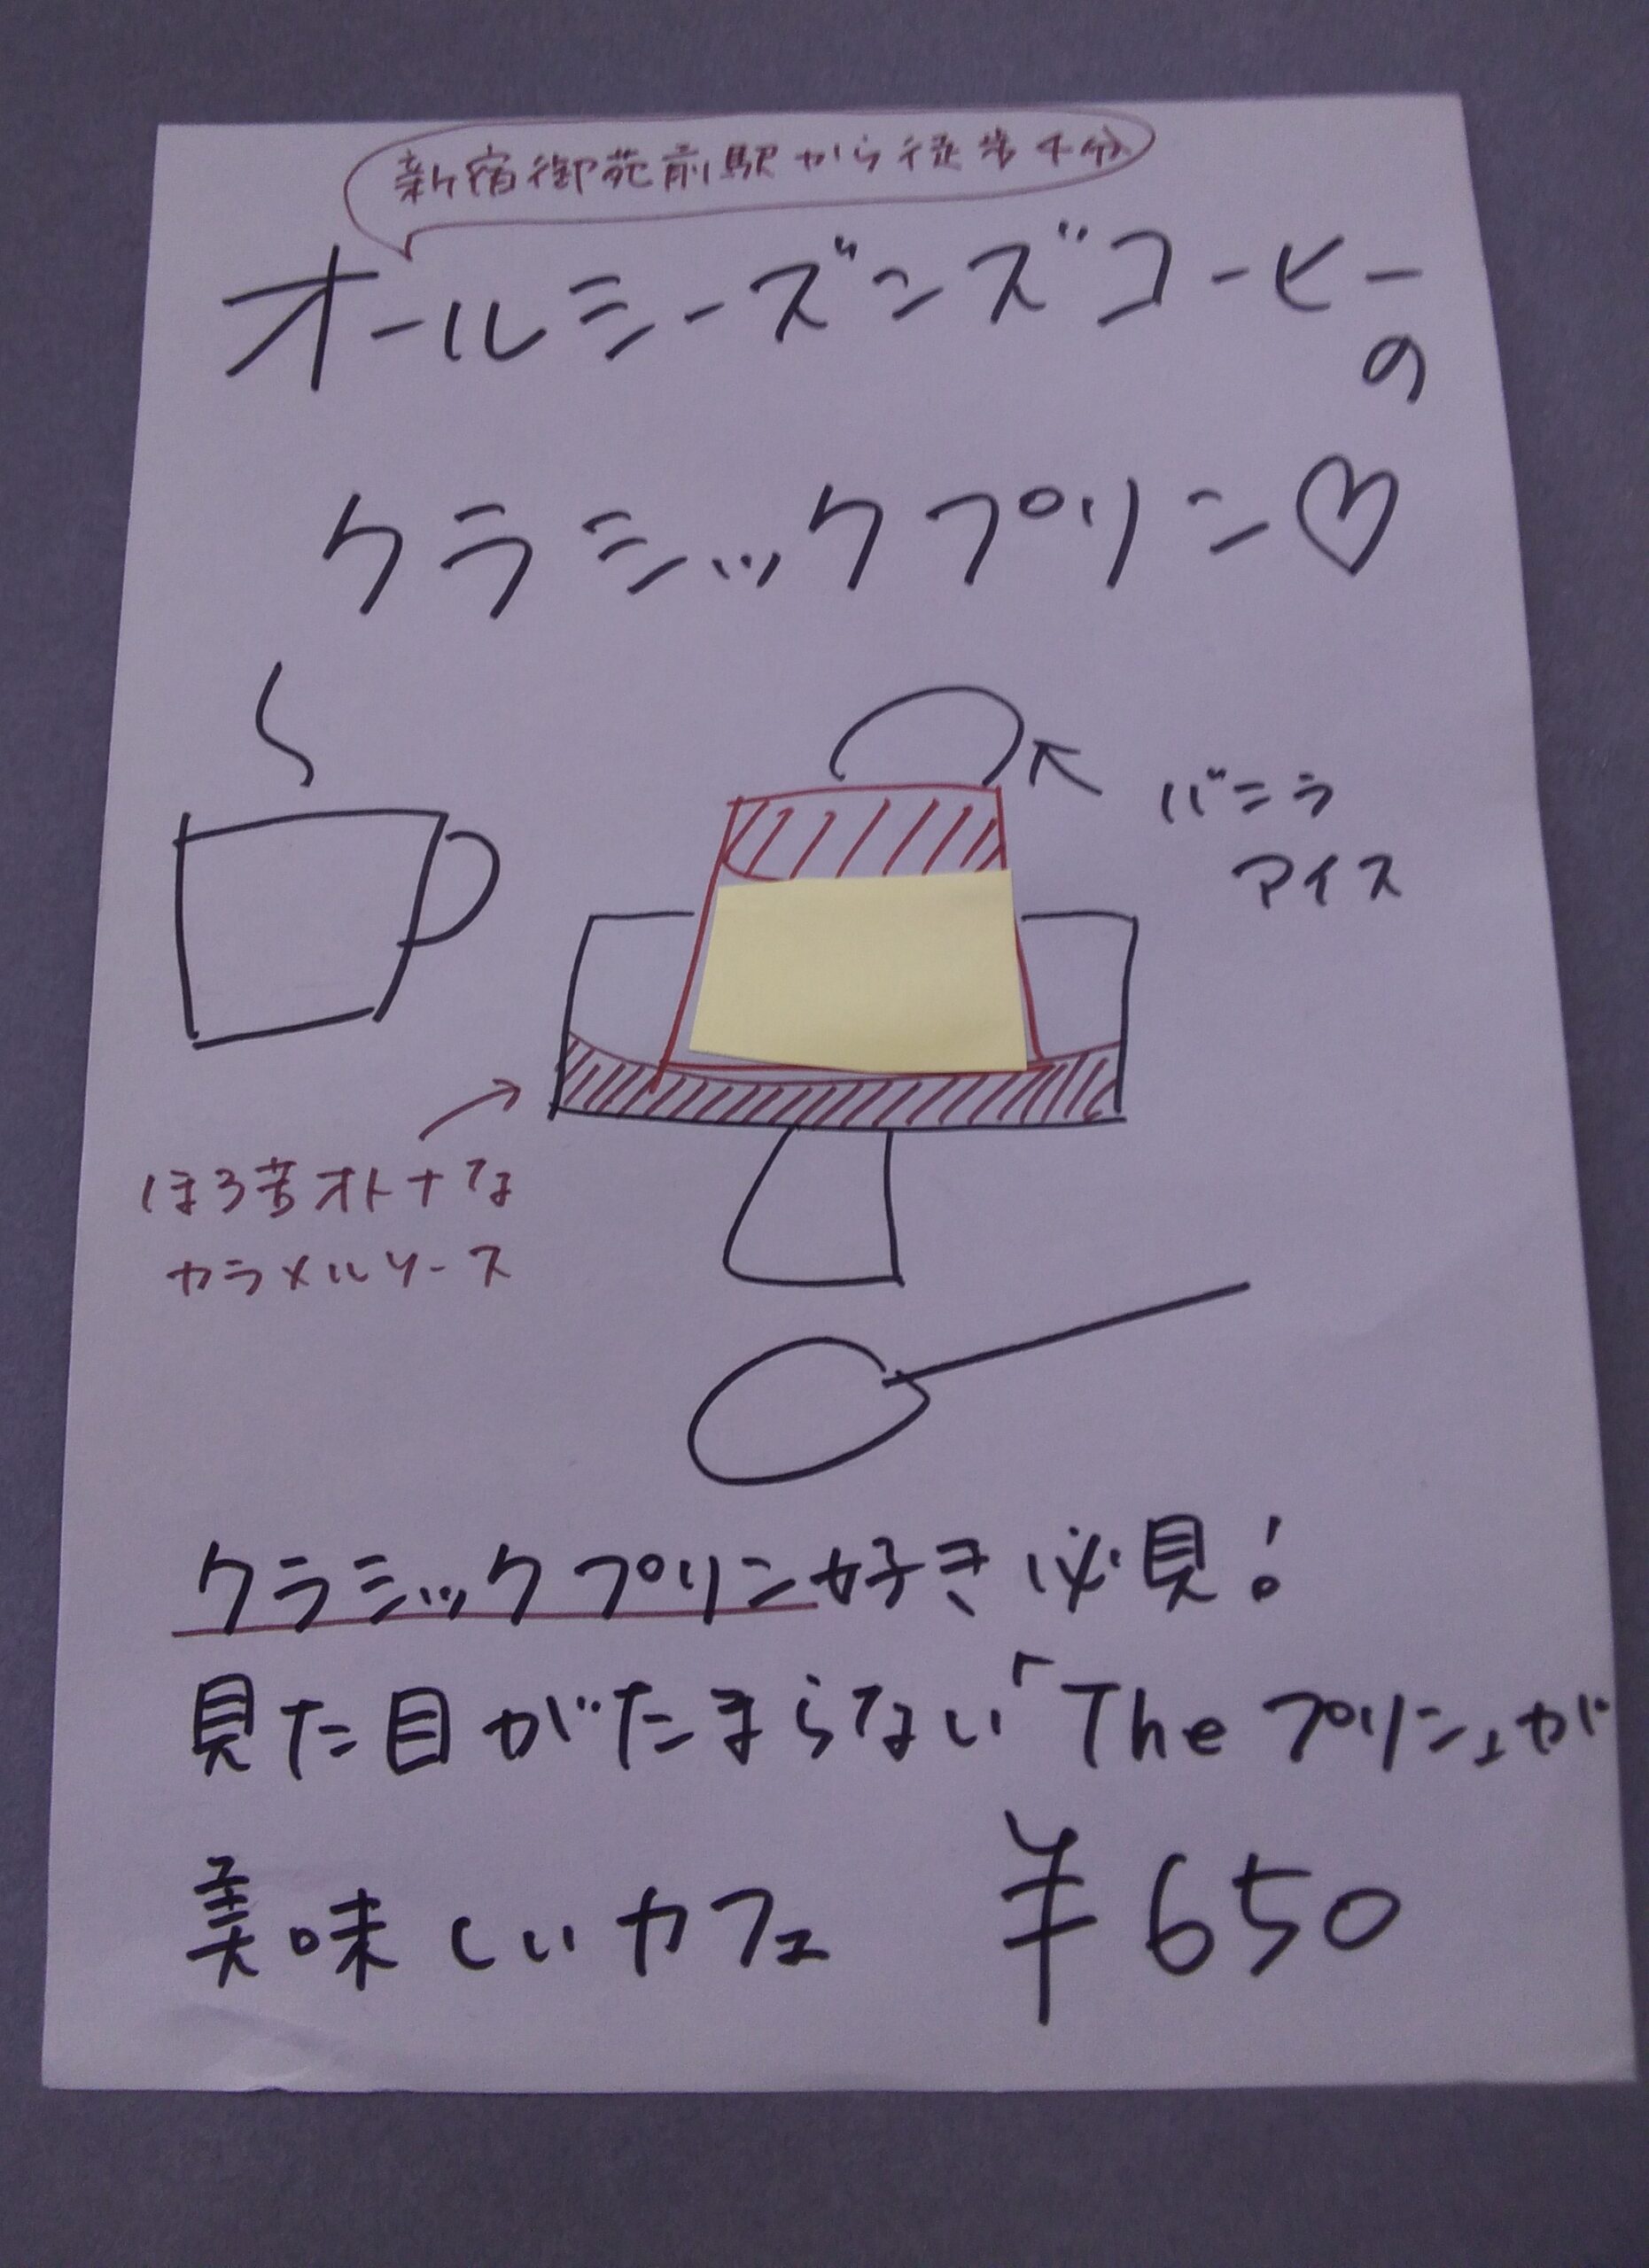 新宿御苑前駅から徒歩4分
オールシーズンズコーヒーの
クラシックプリン♡
バニラ
アイス
ほろ苦オトナな
カラメルソース
クラシックプリン好き必見!
見た目がたまらない「Theプリン」が
美味しいカフェ ¥650